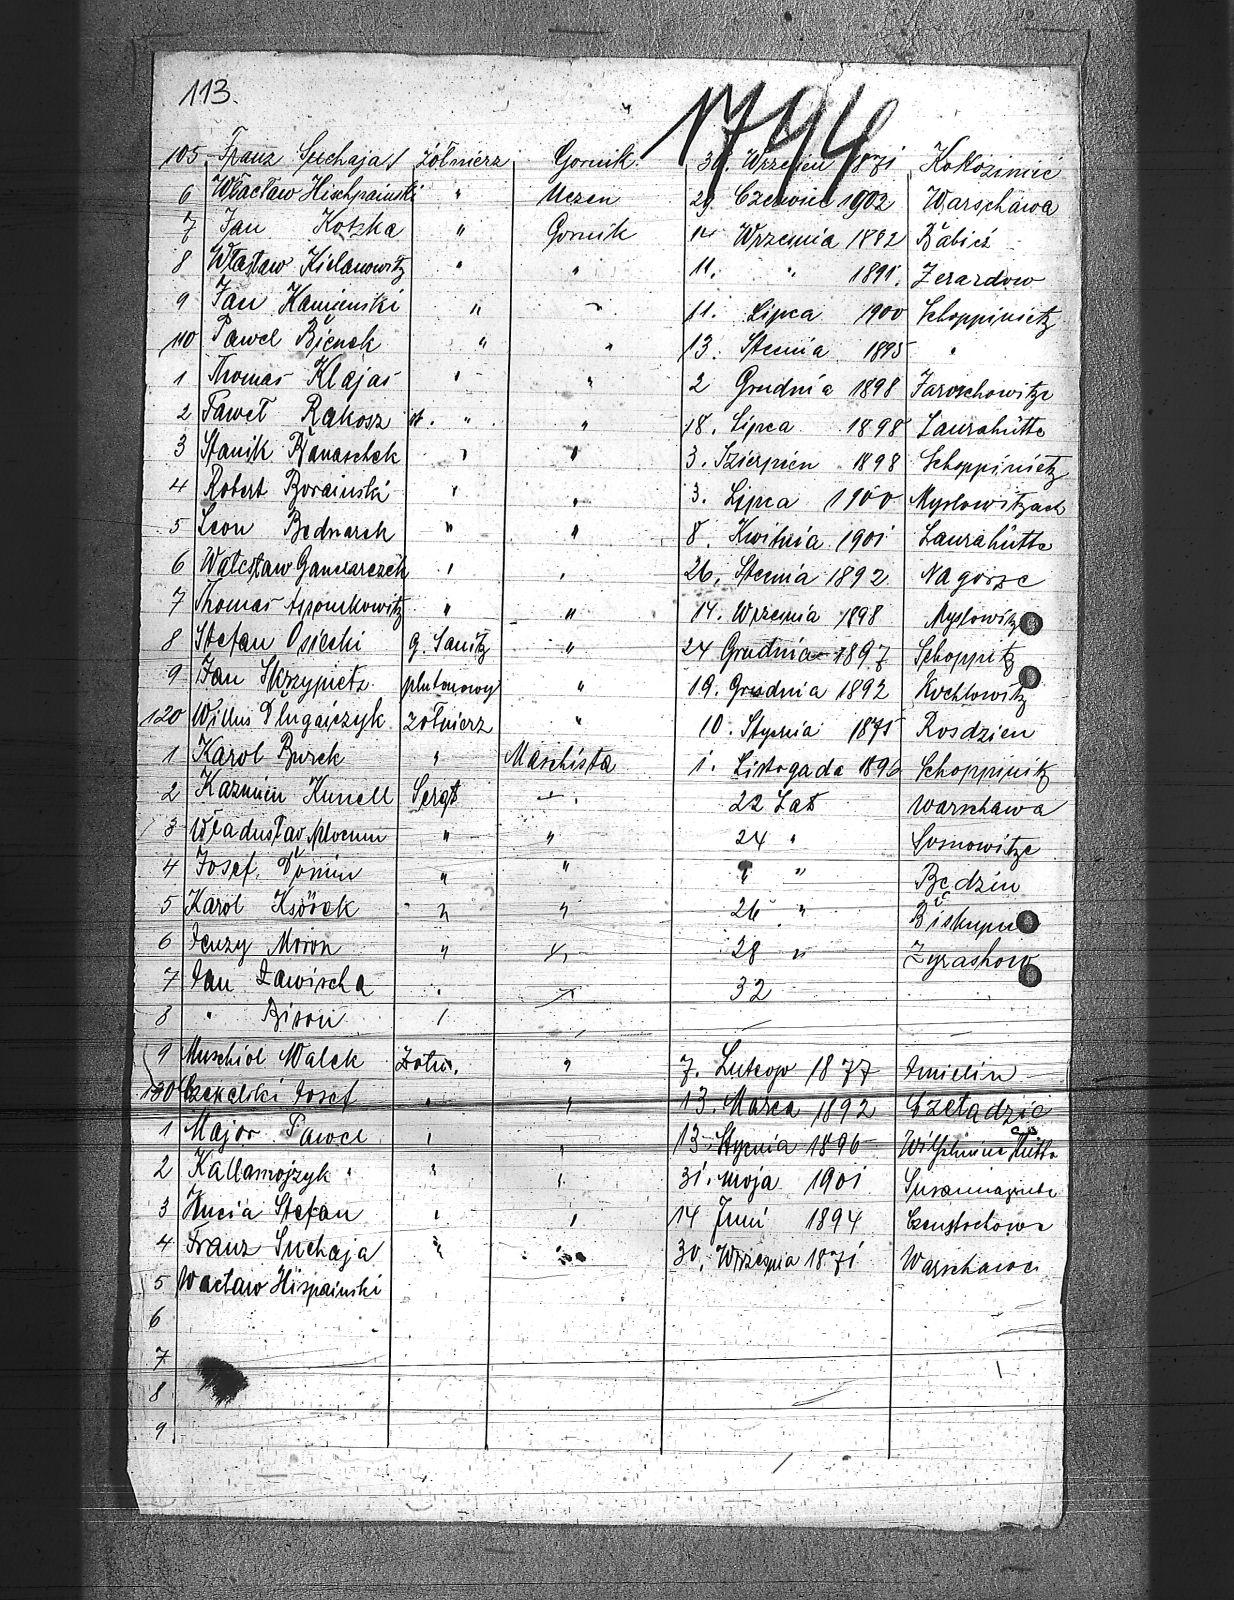 113.
1794
105 Franz Suchaja / żołnierz Gornik 30. Wrzesien 1871 Kokozinic
6 Wacław Hischpainski " Uczen 29. Czerwiec 1902 Warschawa
7 Jan Kotzka " Gornik 14 Wrzesnia 1892 Babice
8 Kielanowitz " " 11. " 1891. Zerardow
9 Jan Kamienski " " 11. Lipca 1900 Schoppinietz
110 Pawel Bienek " " 13. Stecnia 1895 "
1 Thomas Klajas " " 2 Grudnia 1898 Jaroschowitze
2 Paweł Rakosz st. " " 18. Lipca 1898 Laurahütte
3 Stanik Banaschek " " 3. Szierpien 1898 Schoppinietz
4 Robert Borainski " " 3. Lipca 1900
5 Leon Bednarek " " 8. Kwitnia 1901 Laurahütte
6 " " 26. Stecnia 1892 Nagorze
7 Thomas " " 14. Wrzesnia 1898 Myslowitz
8 Stefan Osiecki g. Sanitz " 24 Grudnia 1897 Schoppitz
9 Jan Skrzypietz plutonowy " 19. Grudnia 1892 Kochlowitz
120 Willus Długaiczyk żołnierz " 10. Stycnia 1875 Rosdzien
1 Karol Burek " Maschista 1. Listogada 1896 Schoppinitz
2 Kazmien Kunell Sergt " 22 Lat Warschawa
3 Mocun " " 24 " Sosnowitze
4 Josef. Domin " " " " Będzin
5 Karol Ksörek " " 26 " Biskupn
6 Jenzy Moron " " 28 " Zyrashow
7 Jan Zawischa " " 32
8 " Bison " "
9 Muschiol Walek Zołn. " 7. Lutego 1877 Imielin
130 Czekelski Josef " " 13. Marca 1892 Czeladzie
1 Major Pawel " " 13 Stycnia 1896 Wilhelmine Hütte
2 Kallamojzyk " " " 31. moja 1901 Susannagrube
3 Kucia Stefan " " 14 Juni 1894 Czenstochowa
4 Franz Suchaja " " 30. Wrzesnia 1871 Warschawa
5 Wacław Hispainski
6
7
8
9